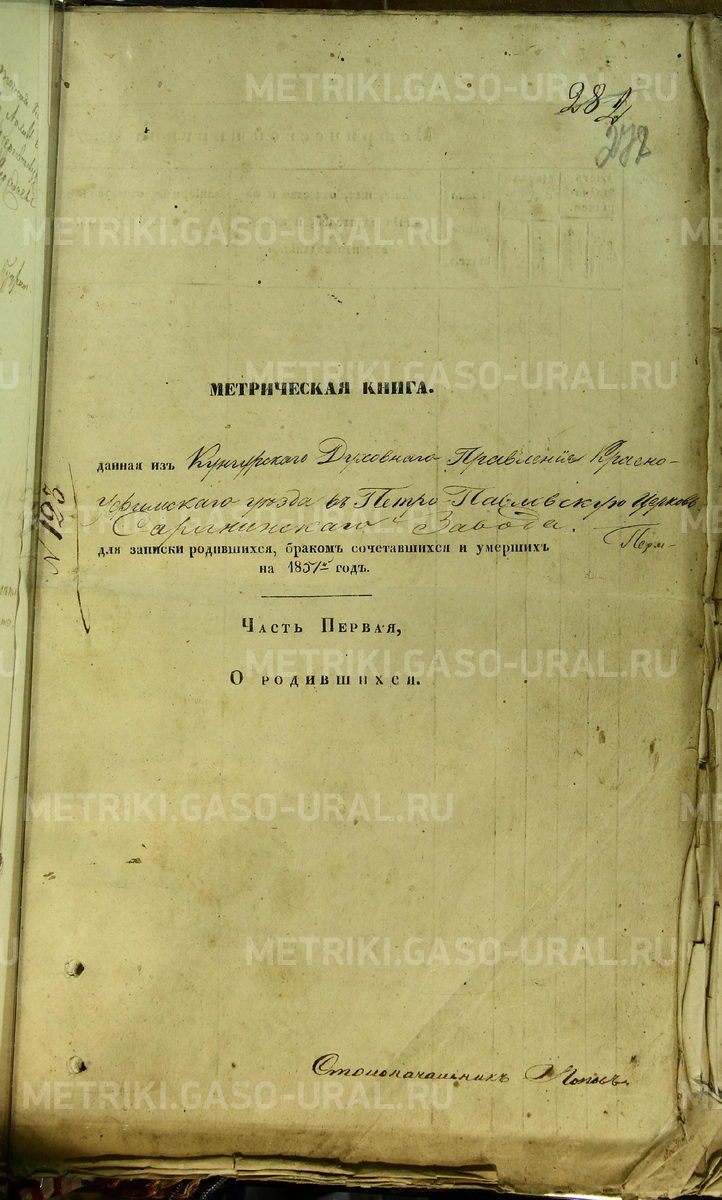 282
272
МЕТРИЧЕСКАЯ КНИГА.
данная изъ Кунгурскаго Духовнаго Правленія Красно-
уфимскаго уѣзда въ Петро Павловскую церковь
Саранинскаго Завода.
N 125
для записки родившихся, бракомъ сочетавшихся и умершихъ
на 1851й годъ.
Перм-
Часть Первая,
О родившихся.
Столоначальникъ Поповъ
METRIKI.GASO-URAL.RU